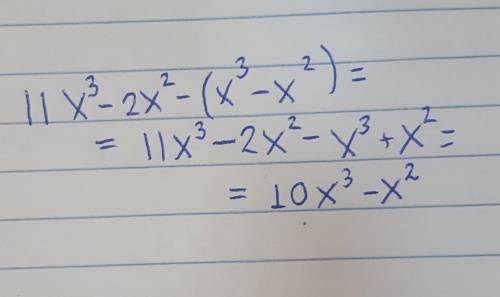 11x³-2x²-(x³-x²)=
=11x³-2x²-x³+x²=
=10x³-x²